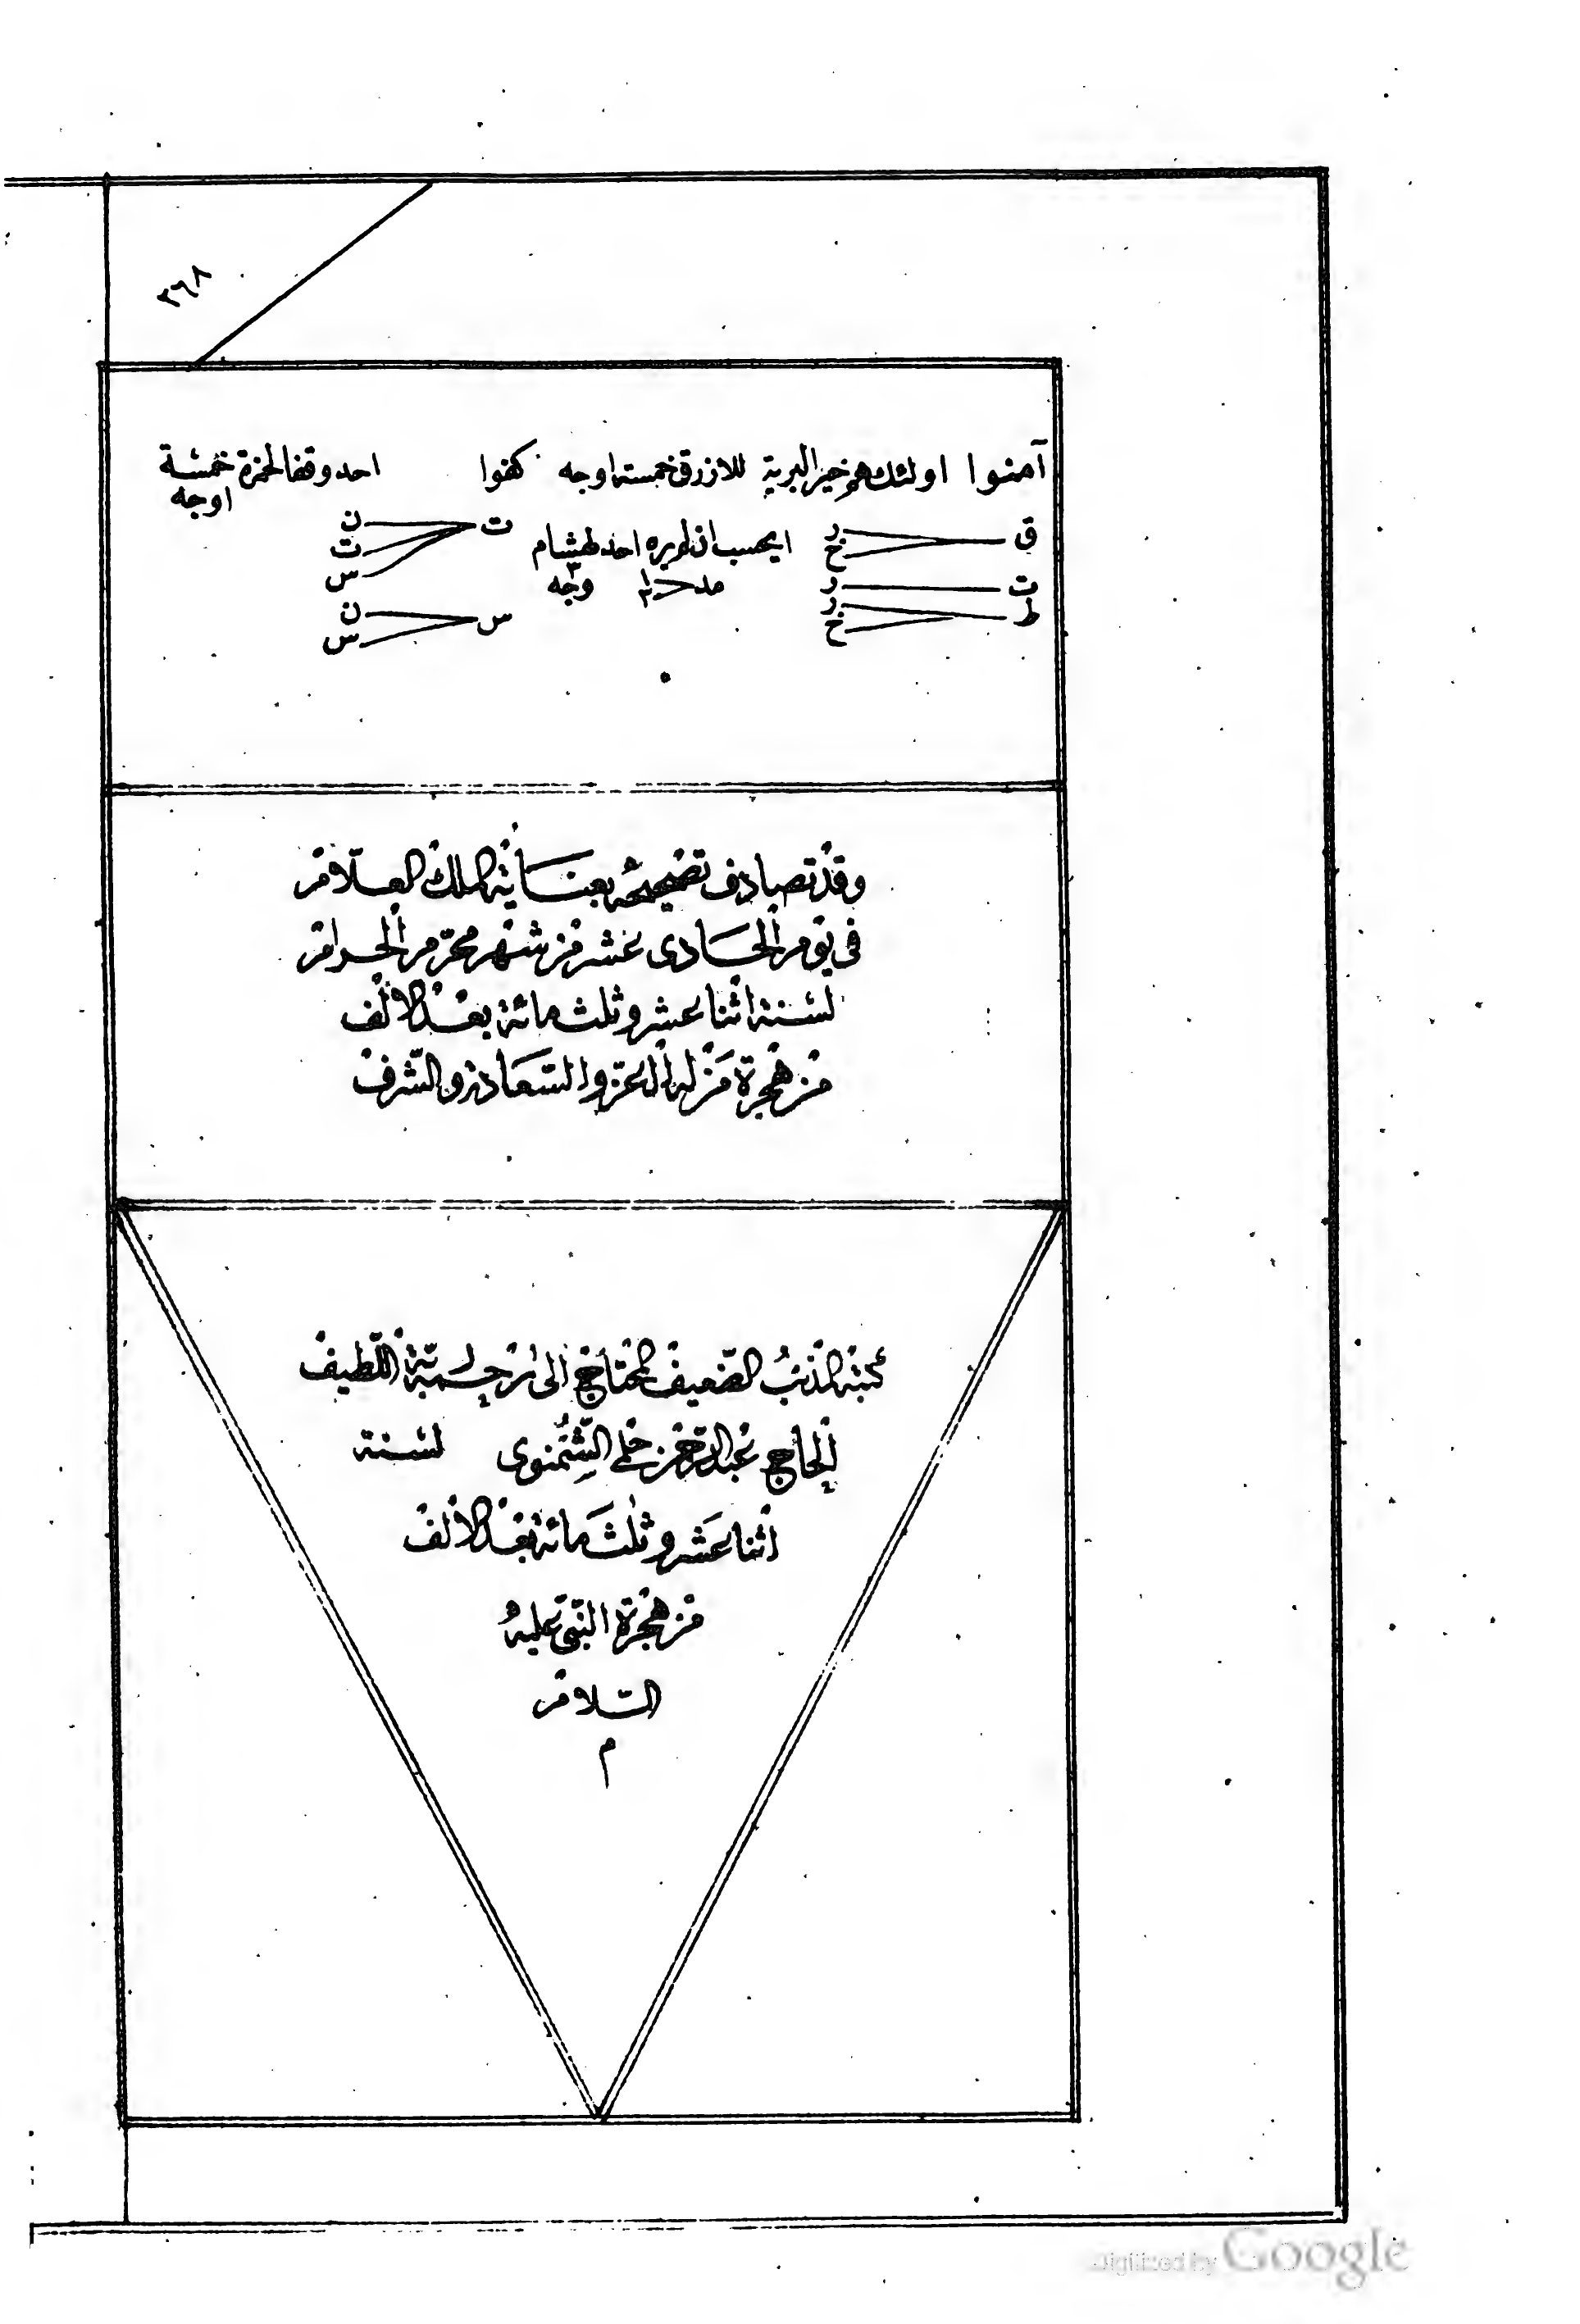 ٣٦٨
آمنوا اولئك هم خير البرية للازرق خمسة اوجه كفوا احد وقفا لحمزة خمسة
اوجه
ق ر خ
ت ر
ط ر خ
ايحسب ان لم يره احد لهشام
مد ٣ وجه
ت ن ت س
س ن س
وقد تصادف تصحيحه بعناية الملك العلام
فى يوم الحادى عشر من شهر محرم الحرام
لسنة اثنا عشر وثلث مائة بعد الالف
من هجرة من له العز والسعادة والشرف
كتبه المذنب الضعيف المحتاج الى رحمة ربه اللطيف
الحاج عبد الرحمن حلمى الشمنوى لسنة
اثنا عشر وثلث مائة بعد الالف
من هجرة النبى عليه
السلام
م
Digitized by Google